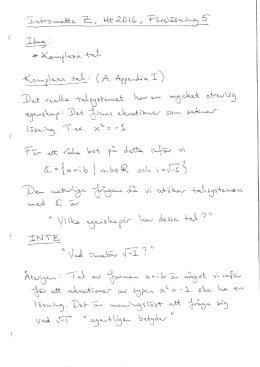 Intromatte Z, Ht2016, Föreläsning 5
Idag:
* Komplexa tal
Komplexa tal: (A. Appendix I)
Det reella talsystemet har en mycket otrevlig
egenskap: Det finns ekvationer som saknar
lösning. T.ex. x² = -1
För att råda bot på detta inför vi
ℂ = {a+ib | a,b∈ℝ och i=√-1}
Den naturliga frågan då vi utökar talsystemen
med ℂ är
"Vilka egenskaper har dessa tal?"
INTE
"Vad innebär √-1?"
Återigen: Tal av formen a+ib är något vi inför
för att ekvationer av typen x²=-1 ska ha en
lösning. Det är meningslöst att fråga sig
vad √-1 "egentligen betyder"